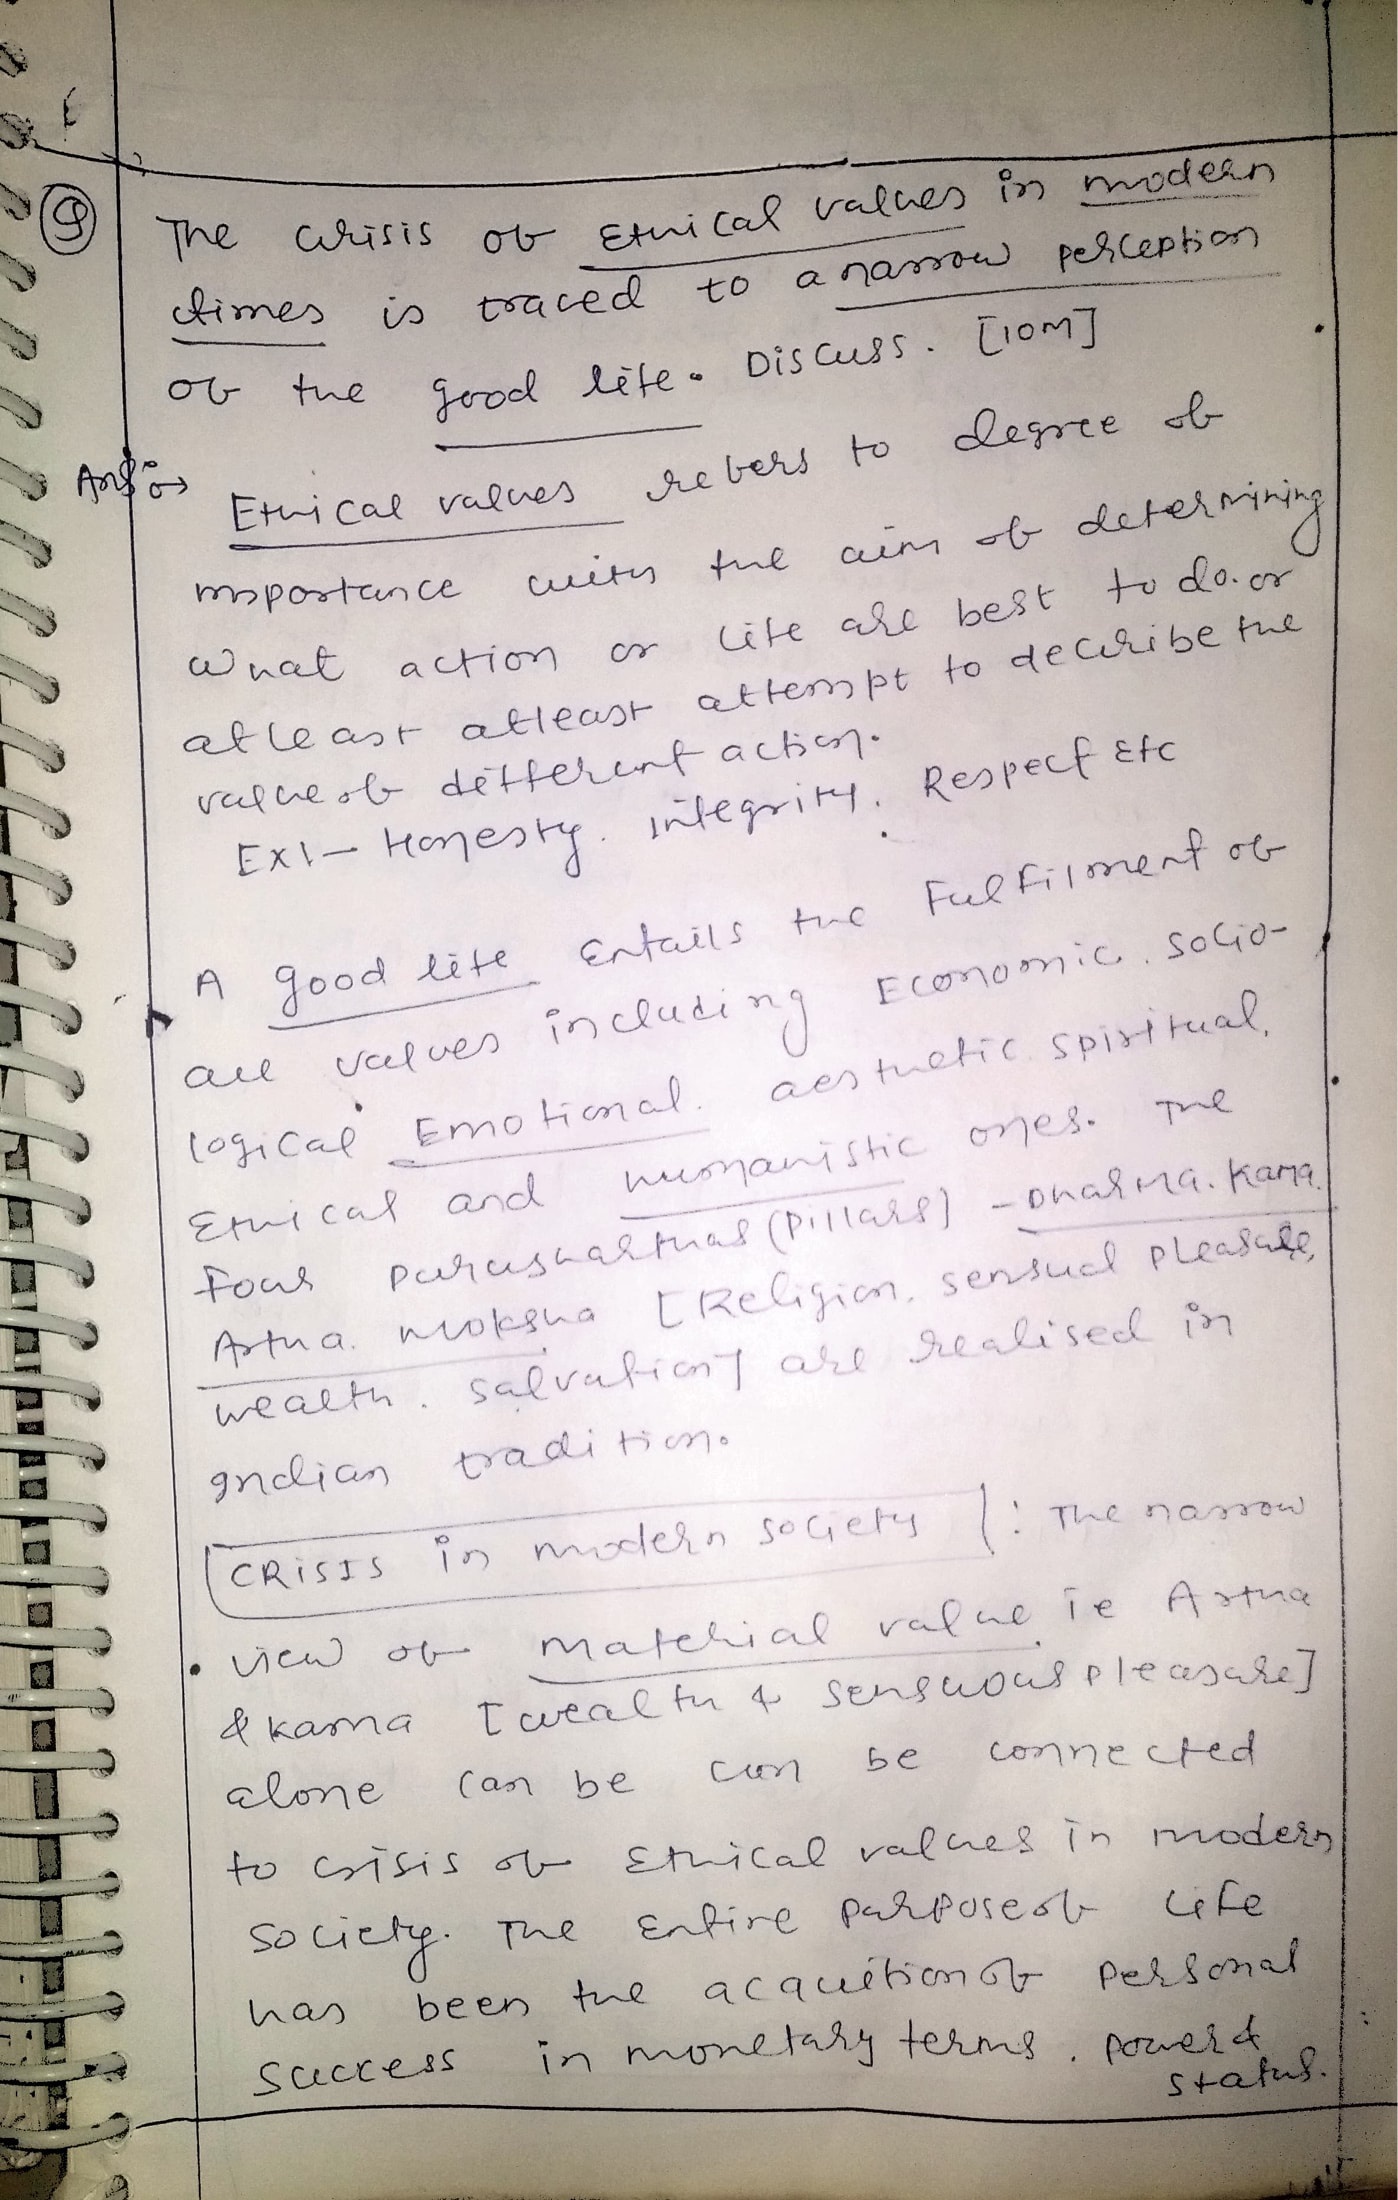 9 The crisis of Ethical values in modern
times is traced to a narrow perception
of the good life. Discuss. [10M]
Ans:→ Ethical values refers to degree of
importance with the aim of determining
what action or life are best to do. or
atleast atleast attempt to decribe the
value of different action.
Ex:- Honesty. integrity. Respect Etc
A good life Entails the Fulfilment of
all values including Economic. socio-
logical Emotional. aesthetic spiritual,
Ethical and humanistic ones. The
four purusharthas (pillars) - Dharma. Kama.
Artha. moksha [Religion. sensual pleasure,
wealth. salvation] are realised in
Indian tradition.
CRISIS in modern society : The narrow
view of material value ie Artha
& kama [wealth & sensuous pleasure]
alone can be can be connected
to crisis of Ethical values in modern
society. The Entire purpose of life
has been the acquition of personal
success in monetary terms. power &
status.